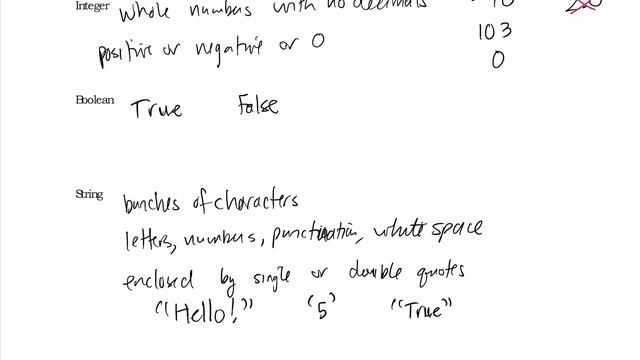 Integer whole numbers with no decimals
positive or negative or 0 103
0
Boolean True False
String bunches of characters
letters, numbers, punctuation, white space
enclosed by single or double quotes
"Hello!" '5' "True"